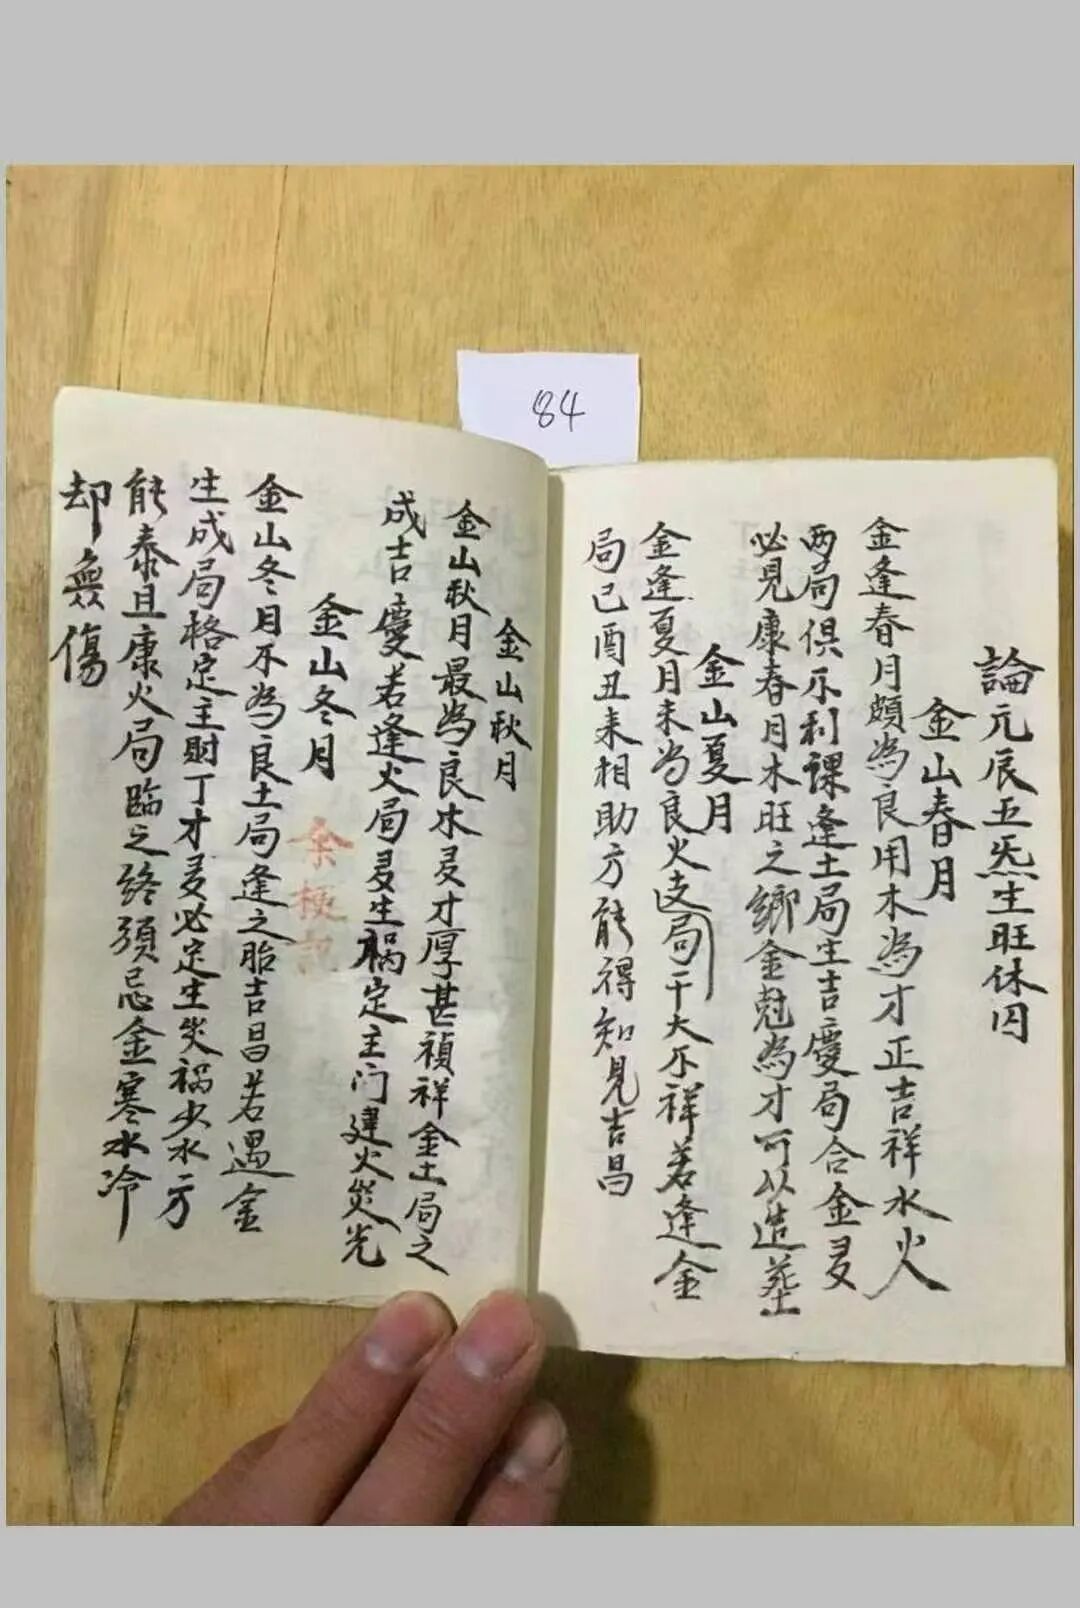 84
論元辰五炁生旺休囚
金山春月
金逢春月頗為良用木為才正吉祥水火
两局俱不利課逢土局生吉慶局合金
必見康春月木旺之鄉金尅為才可以造塟
金山夏月
金逢夏月未為良火支局干大不祥若逢金
局已酉丑来相助方能得知見吉昌
金山秋月
金山秋月最為良木才厚甚禎祥金土局之
成吉慶若逢火局生禍定主门建火災光
金山冬月
金山冬月不為良土局逢之胎吉昌若遇金
生成局格定主財丁才必定生災禍少水方
能泰且康火局臨之終須忌金寒水冷
却無傷